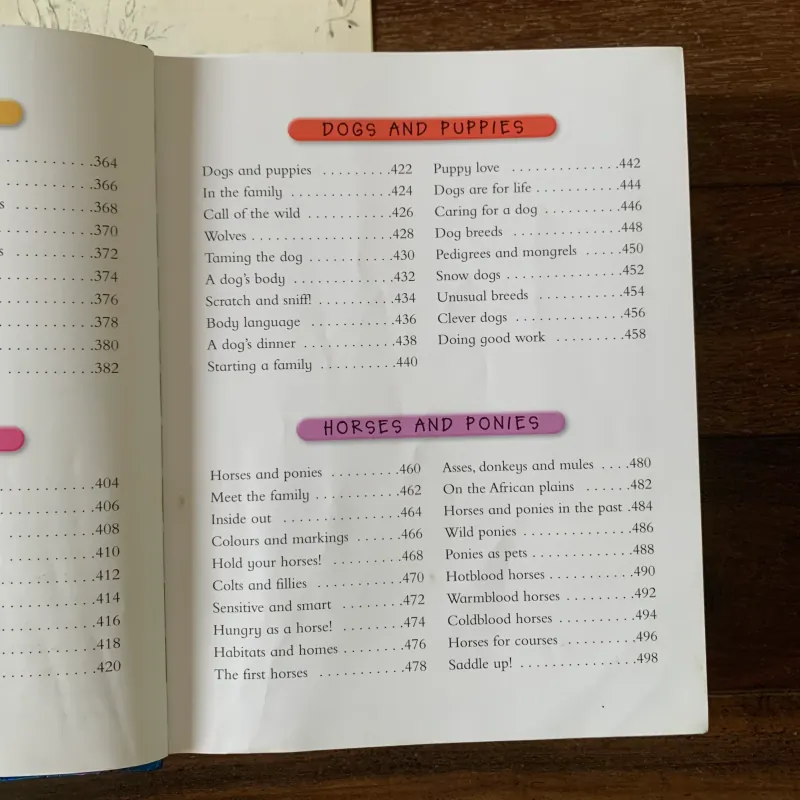 364
366
s 368
370
s 372
374
376
378
380
382
404
406
408
410
412
414
416
418
420
DOGS AND PUPPIES
Dogs and puppies .........422
In the family ............424
Call of the wild ..........426
Wolves .................428
Taming the dog ..........430
A dog's body ............432
Scratch and sniff! .........434
Body language ..........436
A dog's dinner ...........438
Starting a family .........440
Puppy love .............442
Dogs are for life ..........444
Caring for a dog .........446
Dog breeds .............448
Pedigrees and mongrels .....450
Snow dogs ..............452
Unusual breeds ..........454
Clever dogs .............456
Doing good work ........458
HORSES AND PONIES
Horses and ponies ........460
Meet the family ..........462
Inside out ..............464
Colours and markings ......466
Hold your horses! ........468
Colts and fillies ..........470
Sensitive and smart .......472
Hungry as a horse! .......474
Habitats and homes ........476
The first horses ..........478
Asses, donkeys and mules ....480
On the African plains ......482
Horses and ponies in the past .484
Wild ponies .............486
Ponies as pets ............488
Hotblood horses ..........490
Warmblood horses ........492
Coldblood horses .........494
Horses for courses ........496
Saddle up! ..............498